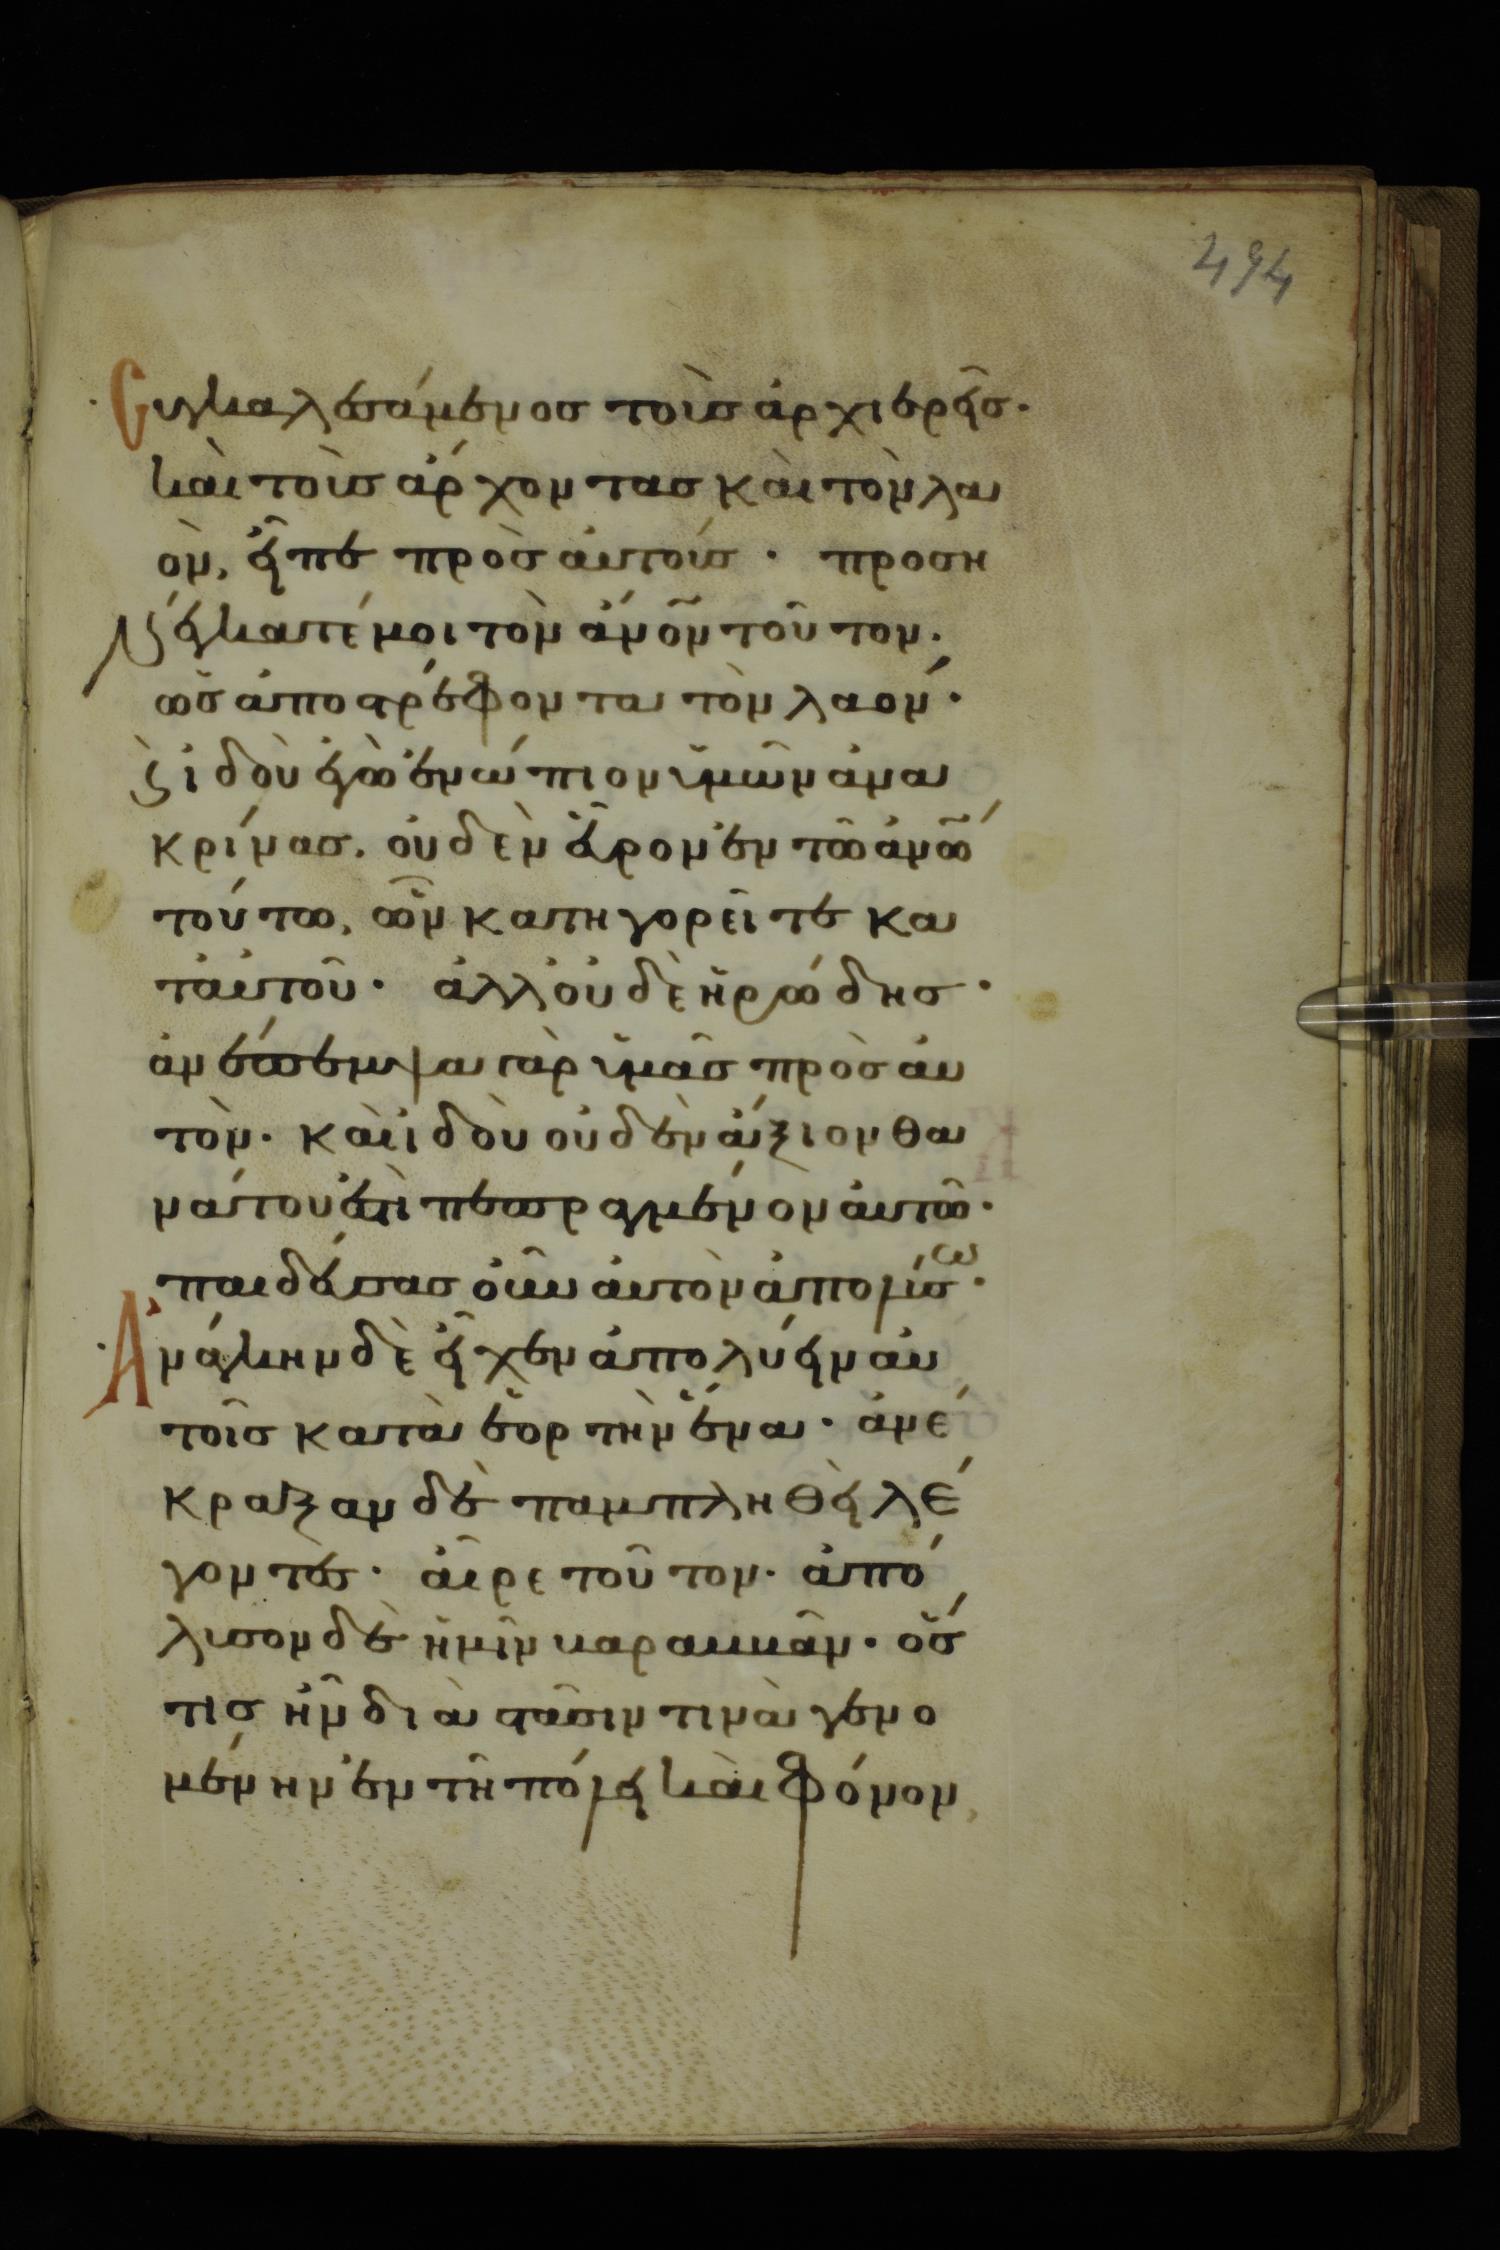 494
Συγκαλεσάμενος τοὺς ἀρχιερεῖς·
καὶ τοὺς ἄρχοντας καὶ τὸν λα
ὸν, εἶπε πρὸς αὐτούς · προση
νέγκατέ μοι τὸν ἄνο̅ν τοῦτον.
ὡς ἀποστρέφοντα τὸν λαόν·
ϛ̀ ἰδοὺ ἐγὼ ἐνώπιον ὑμῶν ἀνα
κρίνας. οὐδὲν εὗρον ἐν τῶ ἀνω̅
τούτω, ὧν κατηγορεῖτε κα
τἀυτοῦ· ἀλλ' οὐδὲ ἡρώδης·
ἀνέπεμψα γὰρ ὑμᾶς πρὸς αὐ
τὸν· καὶ ἰδοὺ οὐδὲν ἄξιον θα
νάτου ἐστὶ πεπραγμένον αὐτῶ·
παιδεύσας οὖν αὐτὸν ἀπολύσω·
Ἀνάγκην δὲ εἶχεν ἀπολύειν αὐ
τοῖς κατὰ ἑορτὴν ἕνα· ἀνέ
κραξαν δὲ παμπληθεὶ λέ
γοντες· αἶρε τοῦτον· ἀπό
λυσον δὲ ἡμῖν βαραββᾶν· ὅσ
τις ἦν διὰ στᾶσιν τινὰ γενο
μένην ἐν τῆ πόλει καὶ φόνον